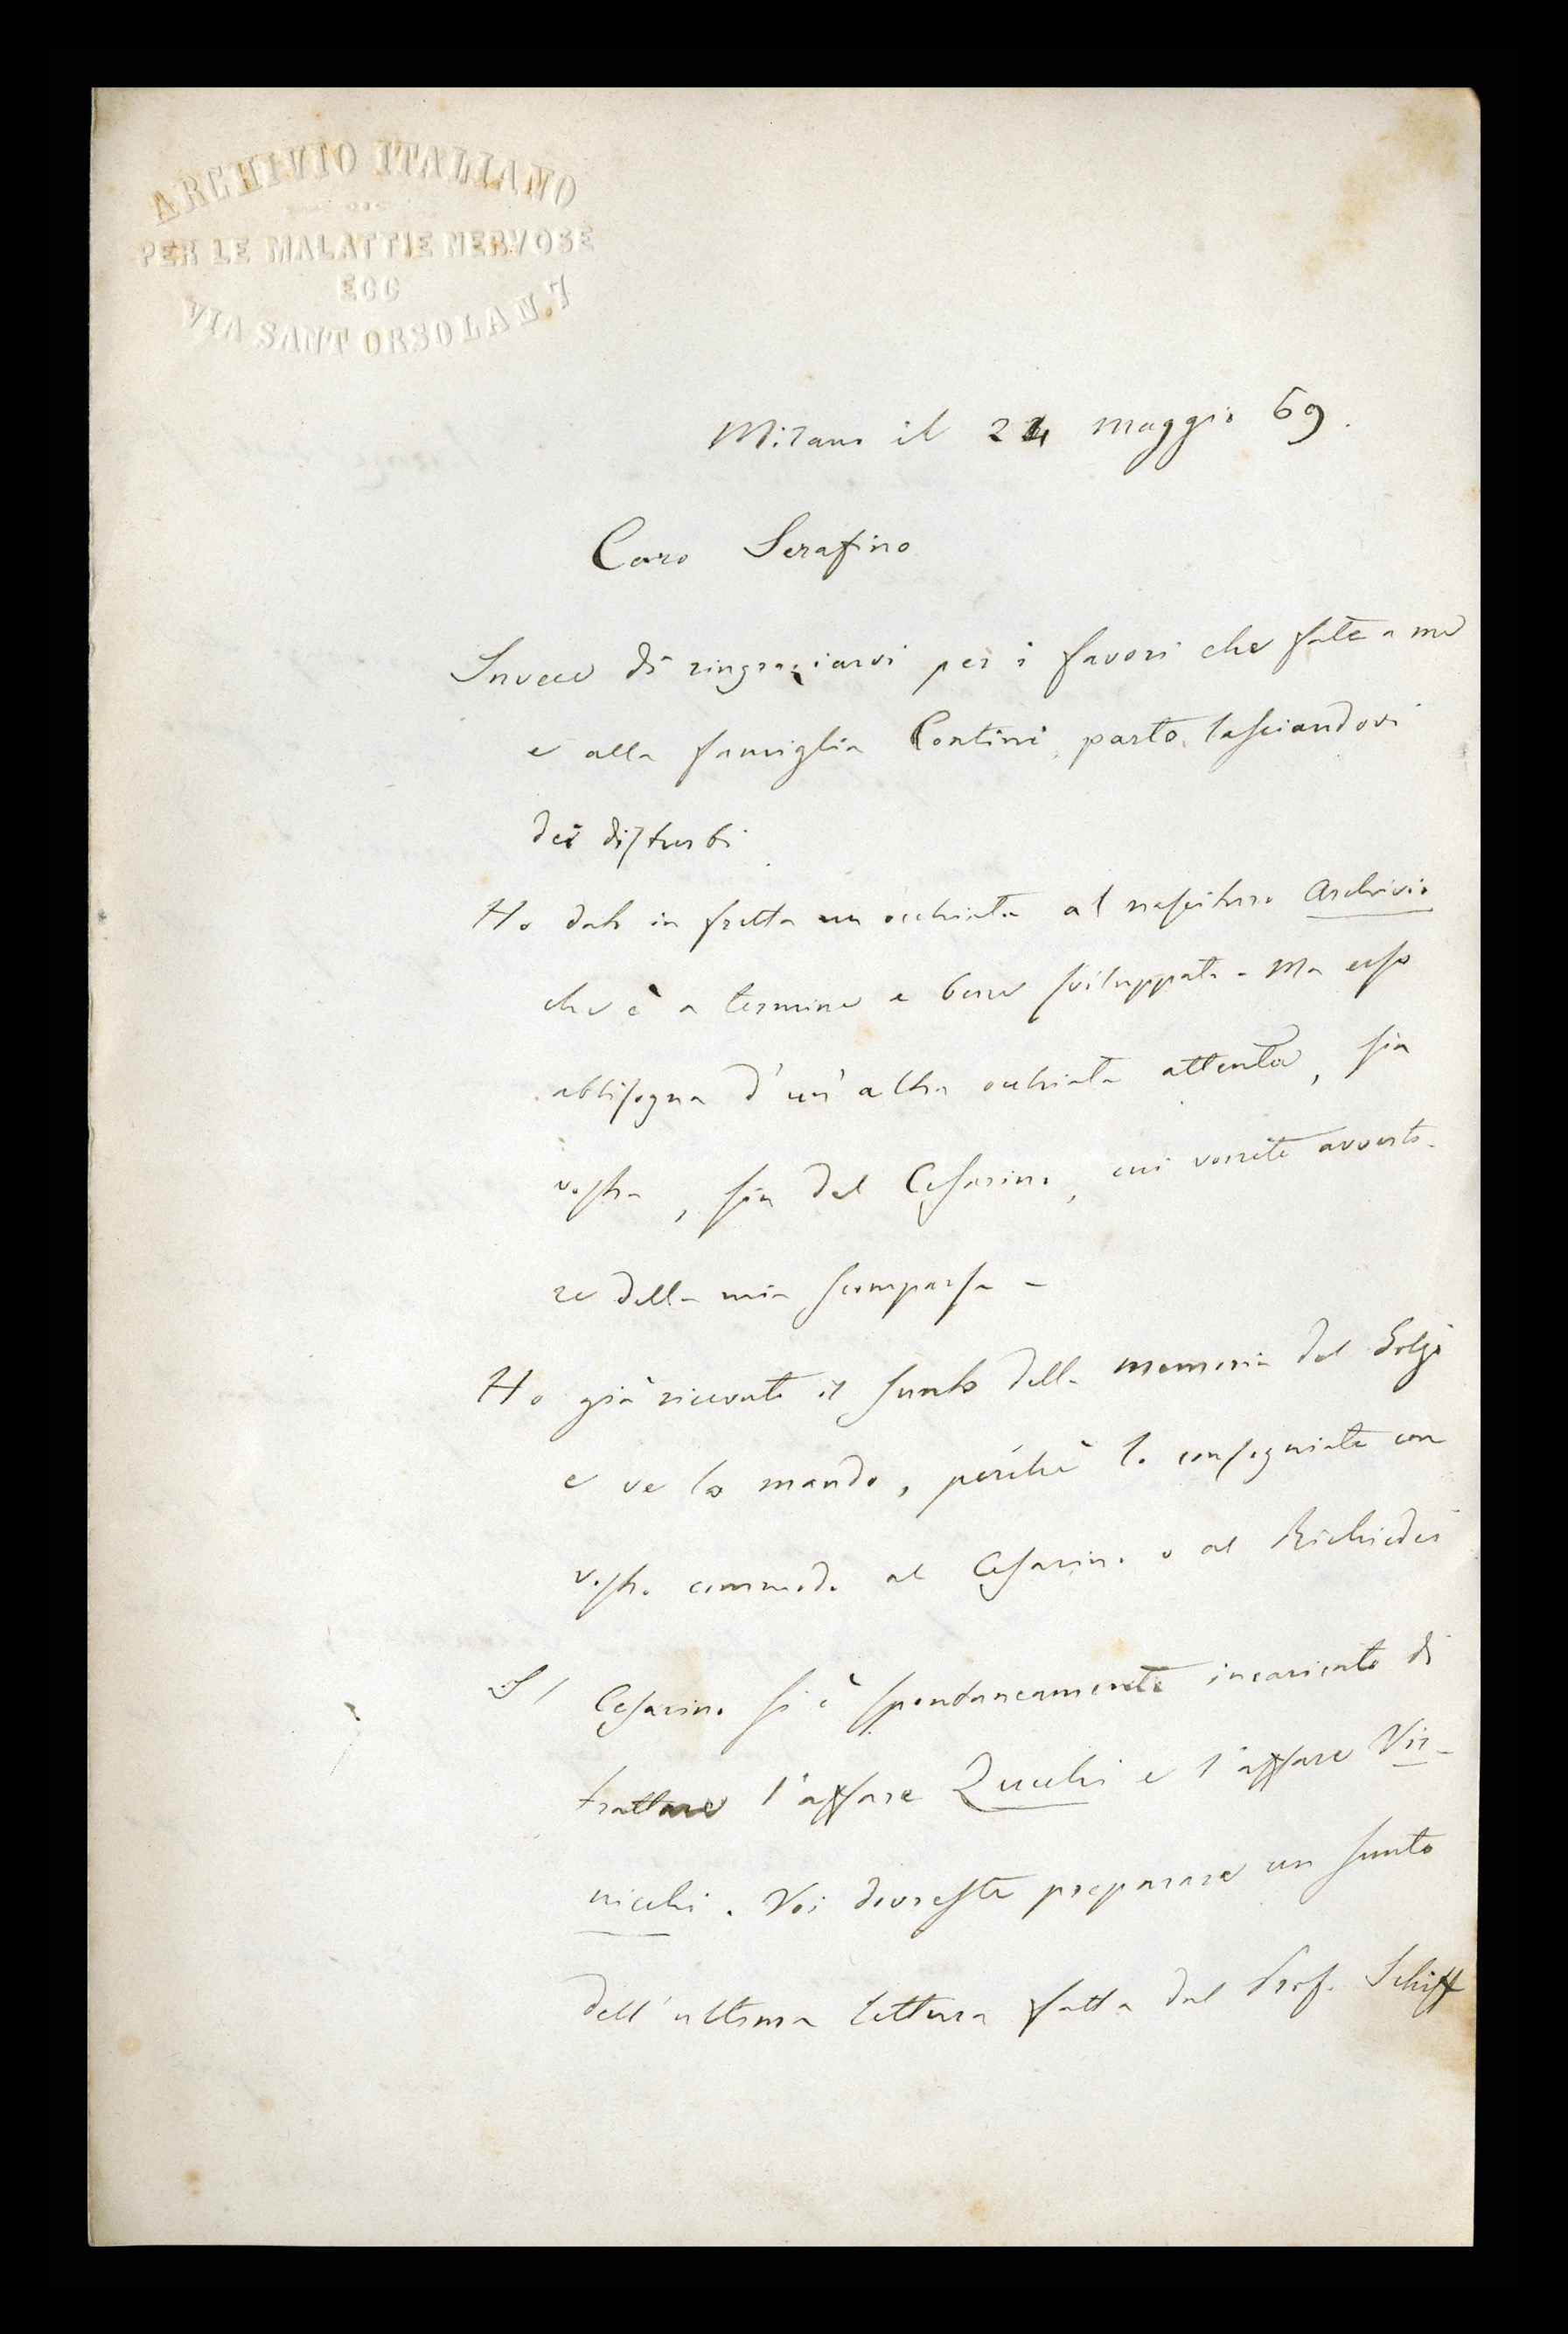 ARCHIVIO ITALIANO
PER LE MALATTIE NERVOSE
ECC
VIA SANT ORSOLA N. 7
Milano il 24 maggio 69.
Caro Serafino
Invece di ringraziarvi per i favori che fate a me
e alla famiglia Contini, parto, lasciandovi
dei disturbi
Ho dato in fretta un occhiata al nascituro Archivio
che è a termine e bene sviluppato - Ma esso
abbisogna d'un'altra occhiata attenta, sia
vostra, sia del Cesarino, cui vorrete avverti-
re della mia scomparsa -
Ho già ricevuto il sunto della memoria del Golgi
e ve lo mando, perchè lo consegniate con
vostro commodo al Cesarino o al Richiedei
Il Cesarino si è spontaneamente incaricato di
trattare l'affare Zucchi e l'affare Vir-
nicchi. Voi dovreste preparare un sunto
dell'ultima lettura fatta dal Prof. Schiff